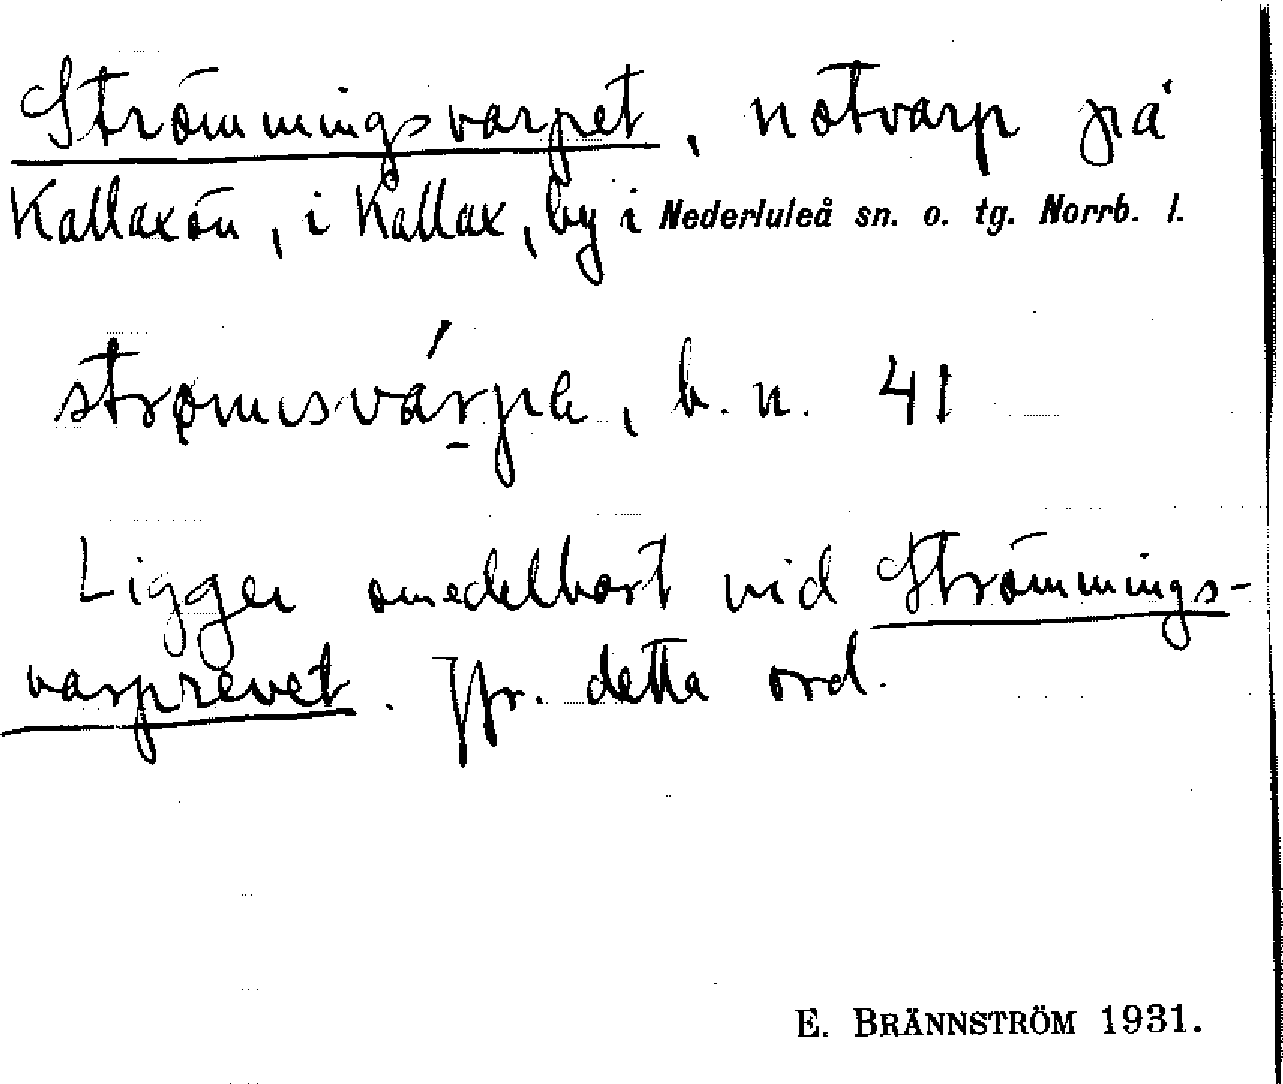 Strömmingsvarpet, notvarp på
Kallaxön, i Kallax, by i Nederluleå sn. o. tg. Norrb. l.
b. n. 41
Ligger omedelbart vid Strömmings-
varprevet. Jfr. detta ord.
E. BRÄNNSTRÖM 1931.